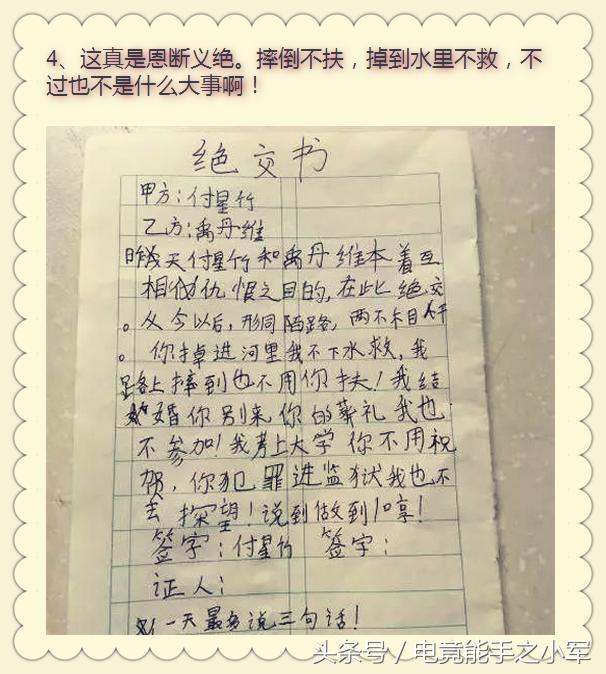 4、这真是恩断义绝。摔倒不扶，掉到水里不救，不
过也不是什么大事啊！
绝交书
甲方：付星竹
乙方：禹丹维
昨天付星竹和禹丹维本着互
相仇恨之目的，在此绝交
。从今以后，形同陌路，两不相干
。你掉进河里我不下水救，我
路上摔到也不用你扶！我结
婚你别来你的葬礼我也
不参加！我考上大学你不用祝
贺，你犯罪进监狱我也不
去探望！说到做到！哼！
签字：付星竹 签字：
证人：
一天最多说三句话！
头条号 / 电竞能手之小军